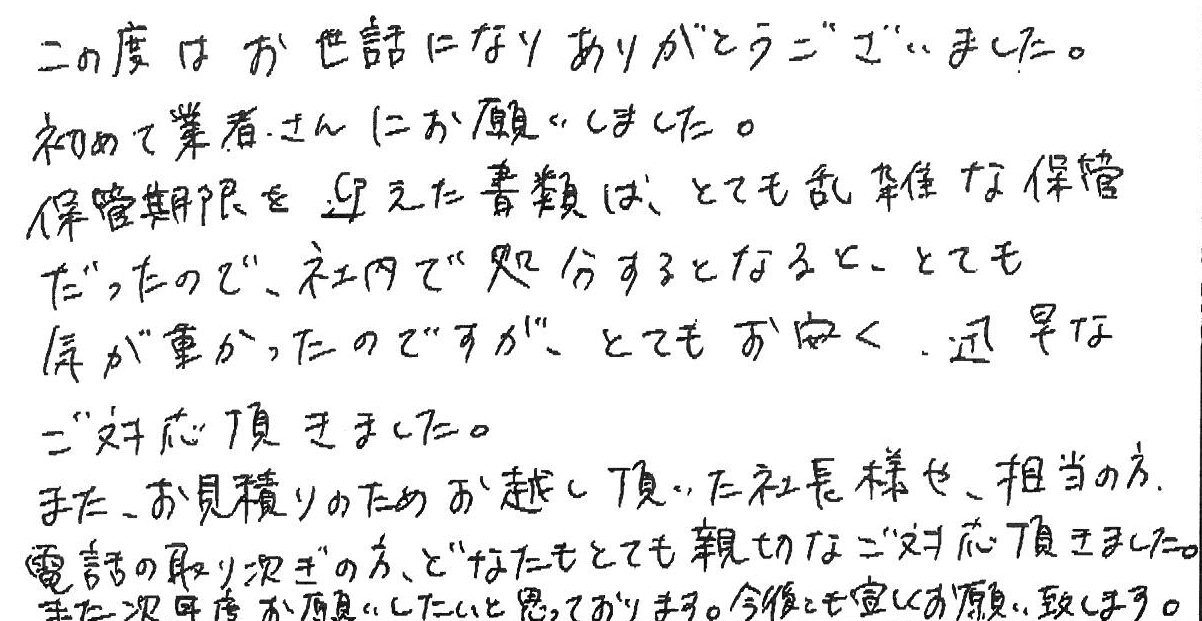 この度はお世話になりありがとうございました。
初めて業者さんにお願いしました。
保管期限を迎えた書類は、とても乱雑な保管
だったので、社内で処分するとなると、とても
気が重かったのですが、とてもお安く、迅早な
ご対応頂きました。
また、お見積りのためお越し頂いた社長様や、担当の方、
電話の取り次ぎの方、どなたもとても親切なご対応頂きました。
また次年度お願いしたいと思っております。今後とも宜しくお願い致します。